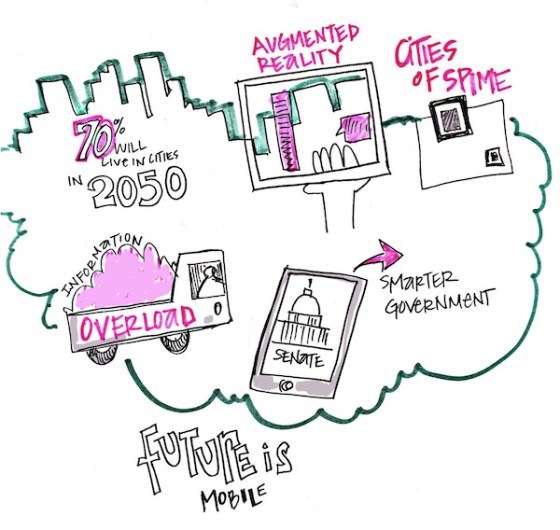 AUGMENTED
REALITY
CITIES
OF SPIME
70%
WILL
LIVE IN CITIES
IN 2050
INFORMATION
OVERLOAD
SENATE
SMARTER
GOVERNMENT
FUTURE IS
MOBILE